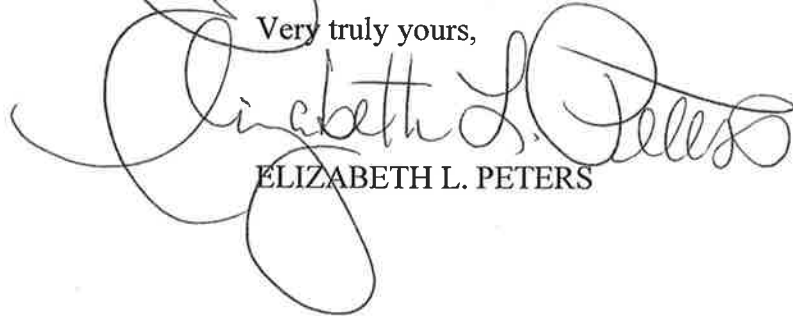 Very truly yours,
Elizabeth L. Peters
ELIZABETH L. PETERS